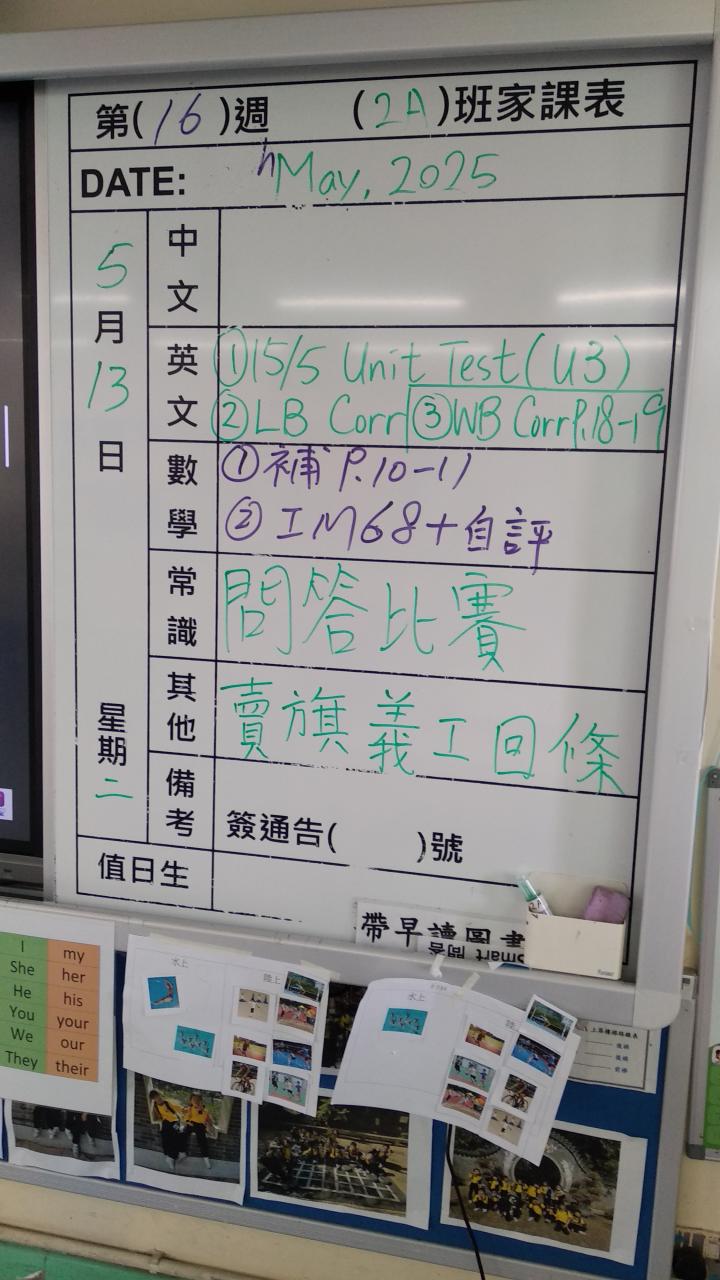 第(16)週 (2A)班家課表
DATE: May, 2025
5月13日 星期二
中文
英文 ①15/5 Unit Test(U3)
②LB Corr ③WB Corr P.18-19
數學 ①補 P.10-11
②IM68+自評
常識 問答比賽
其他 賣旗義工回條
備考 簽通告( )號
值日生
帶早讀圖書
Smart
I my
She her
He his
You your
We our
They their
水上 陸上
水上